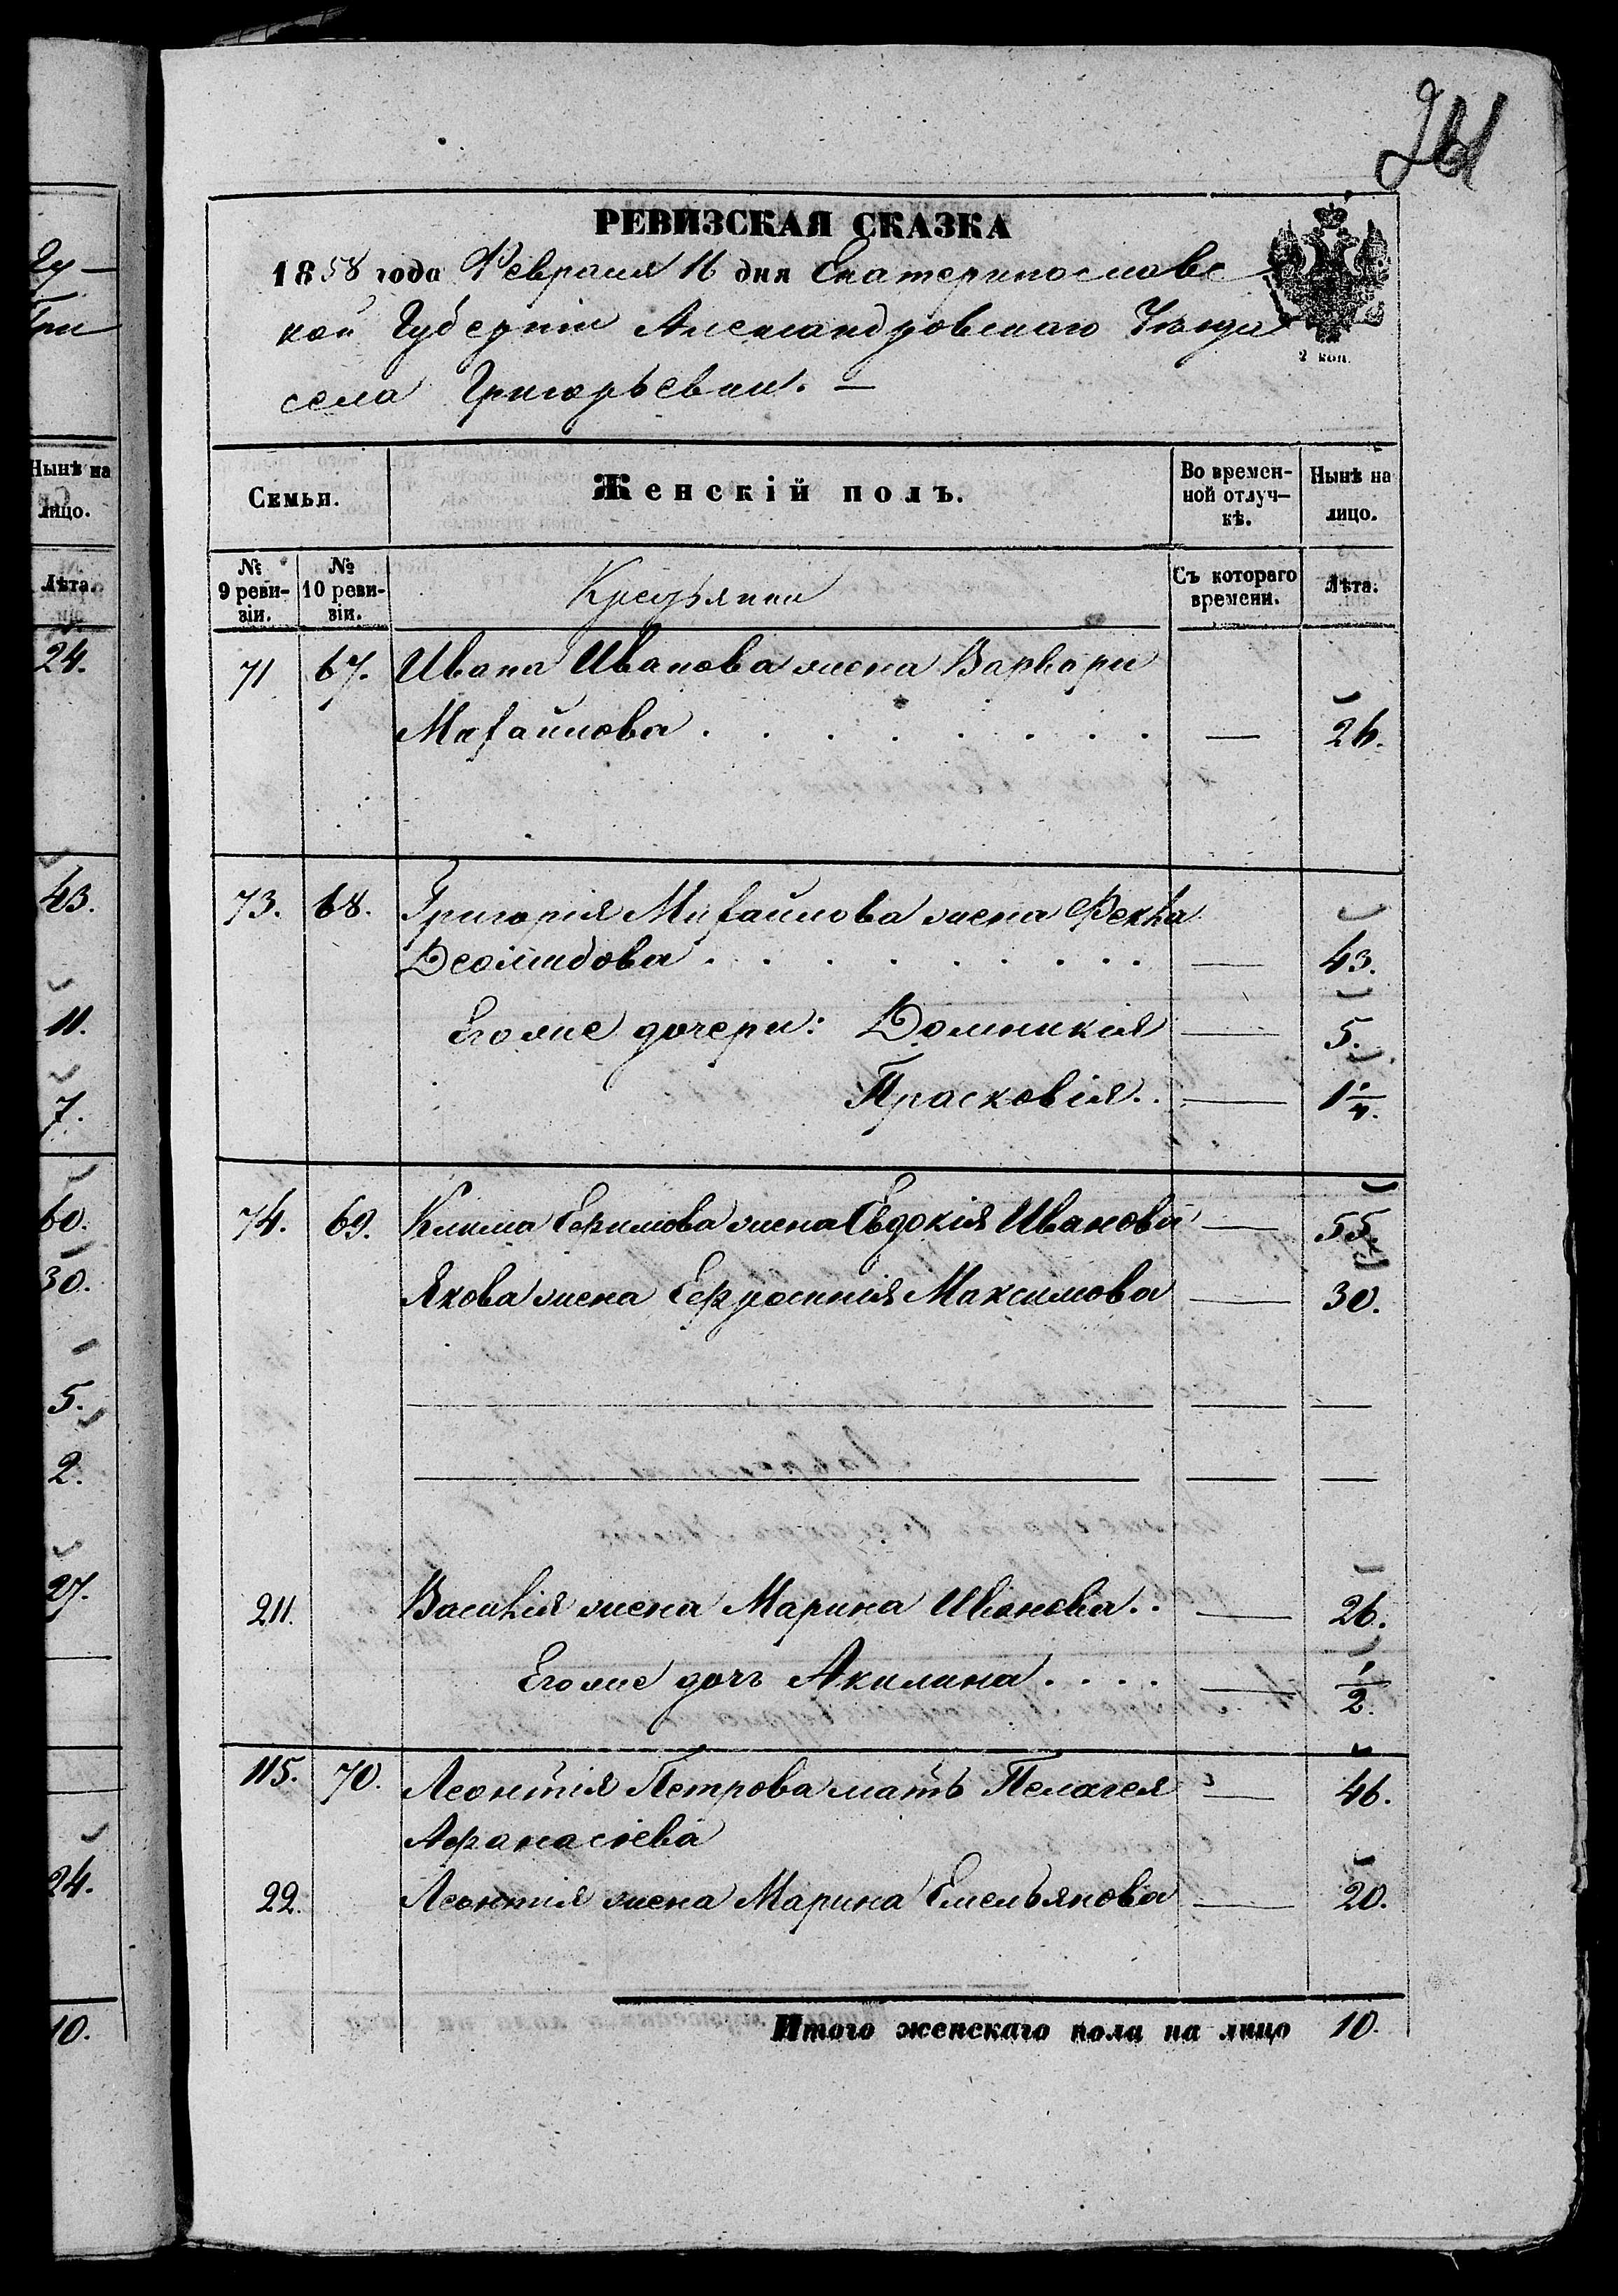 261
РЕВИЗСКАЯ СКАЗКА
1858 года Февраля 16 дня Екатеринославс
кой Губерніи Александровскаго Уѣзда
2 коп.
села Григорьевки. —
Семьи.
Женскій полъ.
Во времен-
ной отлуч-
кѣ.
Нынѣ на
лицо.
№
9 реви-
зіи.
№
10 реви-
зіи.
Крестьянки
Съ котораго
времени.
Лѣта.
71 67. Ивана Иванова жена Варвари
Михайлова . . . . . . . . — 26.
73. 68. Григорія Михайлова жена Фекла
Деомидова . . . . . . . . — 43.
Его же дочери: Домникія — 5.
Прасковія . . — 1 1/4.
74. 69. Клима Ефимова жена Евдокія Иванова — 55.
Якова жена Ефросинія Максимова — 30.
211. Василія жена Марина Иванова . . — 26.
Его же дочь Акилина . . . . — 1/2.
115. 70. Леонтія Петрова мать Пелагея — 46.
Афанасіева
22. Леонтія жена Марина Емельянова — 20.
Итого женскаго пола на лицо 10.
Нынѣ на
лицо.
Лѣта.
24.
43.
11.
7.
60.
30.
5.
2.
27.
24.
10.